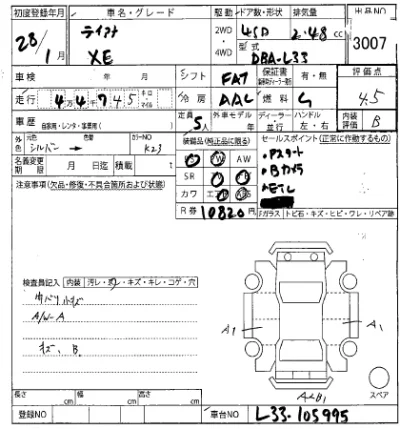 初度登録年月 車名・グレード 駆動 ドア数・形状 排気量 出品NO
28/1月 ティアナ XE 2WD・4WD 4SD 2.48 cc 3007
型式 DBA-L33
車検 年 月 シフト FAT 保証書 有・無 評価点 4.5
走行 44745 キロ マイル 冷房 AAC 燃料 G
車歴 自家用・レンタ・事業用( ) 定員 5人 外車モデル ディーラー・並行 ハンドル 左・右 内装評価 B
外色 元色 シルバー → 色替 カラーNO K23
名義変更期限 月 日迄 積載 t
装備品(純正品に限る) セールスポイント(正常に作動するもの)
PW AW
・Pスタート
SR
・Bカメラ
カワ エアB ABS
・ETC
注意事項(欠品・修復・不具合箇所および状態)
R券 10820円 Fガラス トビ石・キズ・ヒビ・ワレ・リペア跡
検査員記入 内装 汚レ・キズ・キレ・コゲ・穴
内バリ小キズ
A/W-A
キズ、B
A1
A1
スペア
長さ cm 幅 cm 高さ cm
登録NO 車台NO L33-105995